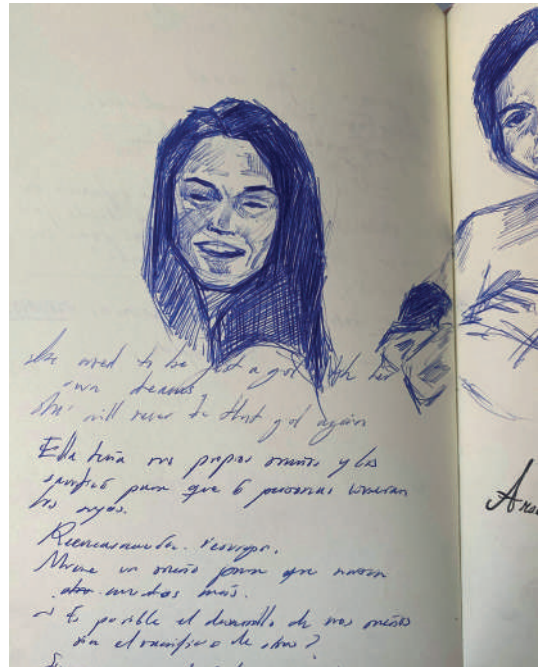 She used to be just a girl with her
own dreams
she will never be that girl again
Ella tenía sus propios sueños y los
sacrificó para que 6 personas tuvieran
los suyos.
Reencarnación.
Muere un sueño para que nazcan
otros muchos más.
→ Es posible el desarrollo de unos sueños
sin el sacrificio de otros?